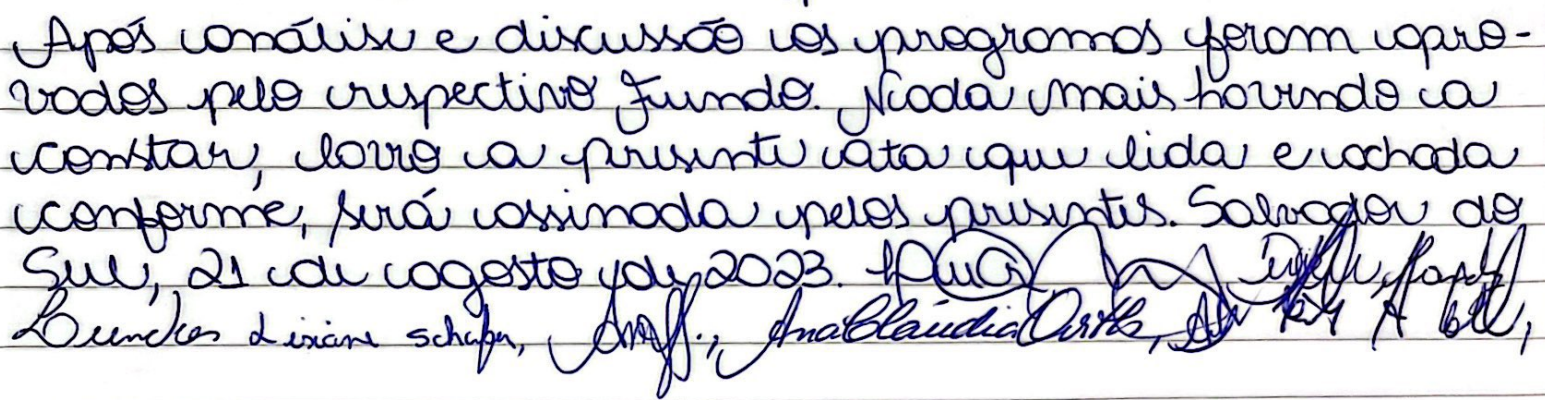 Após análise e discussão os programas foram apro-
vados pelo respectivo Fundo. Nada mais havendo a
constar, lavro a presente ata que lida e achada
conforme, será assinada pelos presentes. Salvador do
Sul, 21 de agosto de 2023.
Lisiane Schafer, Ana Claudia